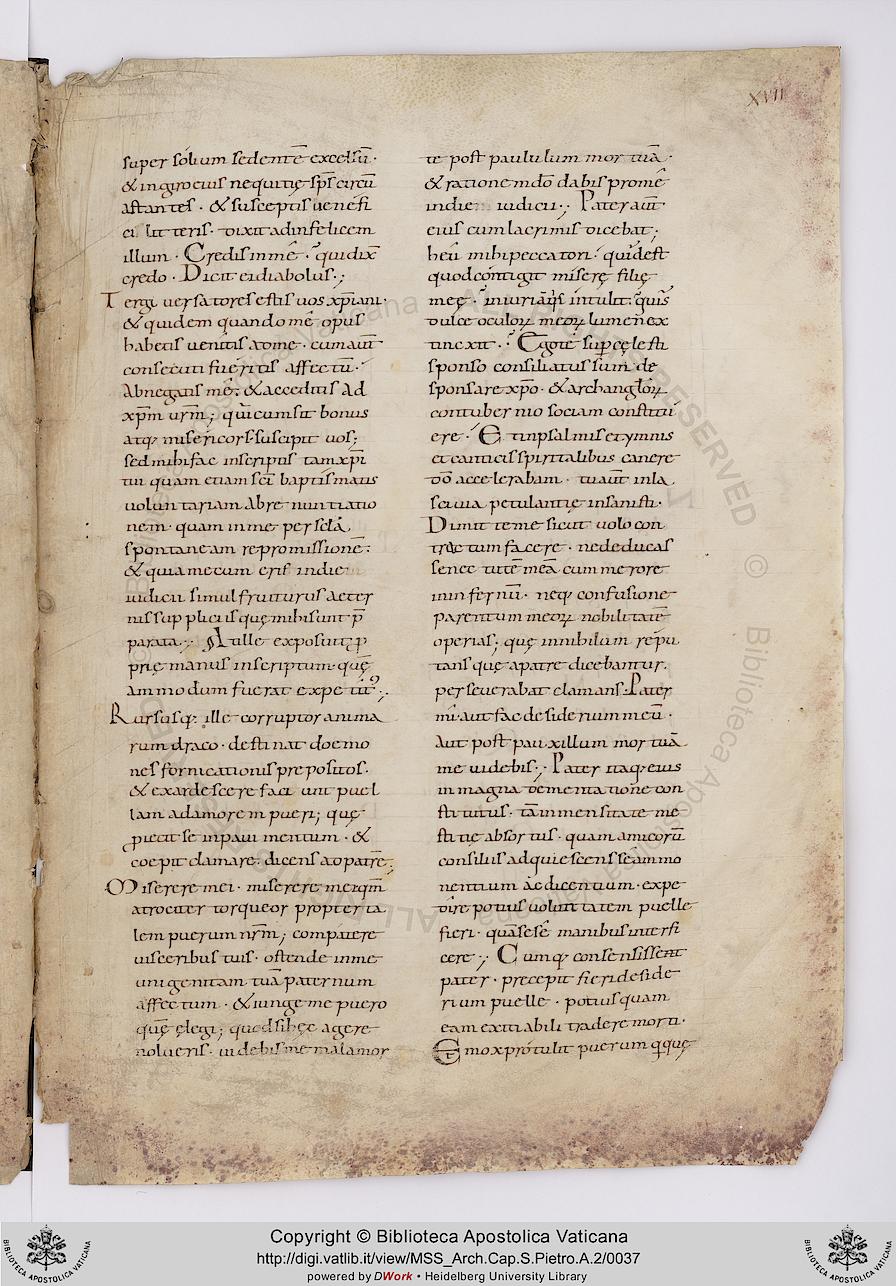 XVII
super sólium sedentē excelsū·
& ingiro eius nequitię sp̄s circū
astantes · & susceptis uenefi
cii litteris · dixit ad infelicem
illum · Credis in mē · qui dix̄
credo · Dicit ei diabolus·;
Tergiuersatores estis uos xp̄iani·
& quidem quando mē opus
habetis uenitis ad me · cum aut̄
consecuti fueritis affectū·
Abnegatis mē· & acceditis ad
xp̄m ur̄m; qui cum sit bonus
atq; misericors suscipit uos;
sed mihi fac in scriptis tam xp̄i
tui quam etiam sc̄i baptismatis
uoluntariam abrenuntiatio
nem · quam in me per sc̄la
spontaneam repromissionē·
& quia mecum eris in die
iudicii simul fruiturus aeter
nis suppliciis quę mihi sunt p̄
parata·; At ille exposuit p
prię manus in scriptum quę
ammodum fuerat expetit·;
Rursusq; ille corruptor anima
rum draco · destinat doemo
nes fornicationis prepositos·
& exardescere faciunt puel
lam ad amorem pueri; quę
proiecit se in pauimentum · &
coepit clamare· dicens ad patrē;
Miserere mei · miserere mei qm̄
atrociter torqueor propter ta
lem puerum nr̄m; compatere
uisceribus tuis · ostende in me
unigenitam tuā paternum
affectum · & iunge me puero
quē elegi; quod si hęc agere
nolueris · uidebis me mala mor
te post paululum mortuā·
& ratione m dō dabis pro mē
in die iudicii·; Pater aut̄
eius cum lacrimis dicebat;
heu mihi peccatori· quid est
quod contigit miserę filię
meę · iniuriā quis intulit· quis
dulce oculoꝝ meoꝝ lumen ex
tinexit·· Ego te sup cęlesti
sponso consiliatus sum de
sponsare xp̄o · & archangloꝝ
contubernio sociam constitu
ere · Et in psalmis et ymnis
et canticis spiritalibus canere
dō accelerabam · tu aut̄ in la
sciuia petulantię insanisti·
Dimitte me sicut uolo con
tractum facere · ne deducas
senectutē meā cum merore
in infernū · neq; confusione
parentum meoꝝ nobilitatē
operias; quę in nihilum repu
tans quę a patre dicebantur·
perseuerabat clamans· Pater
mi aut fac desiderium meū·
Aut post pauxillum mortuā
me uidebis·; Pater itaq; eius
in magna dementatione con
stitutus · tā inmensitate me
stitię absortus · quam amicorū
consiliis adquiescens se ammo
nentium ac dicentium · expe
dire potius uoluntatem puelle
fieri · quā se sē manibus interfi
cere·; Cumq; consensissent
pater · precepit fieri deside
rium puelle · potius quam
eam exitiabili tradere morti·
Et mox protulit puerum q̄ quę
Copyright © Biblioteca Apostolica Vaticana
http://digi.vatlib.it/view/MSS_Arch.Cap.S.Pietro.A.2/0037
powered by DWork • Heidelberg University Library